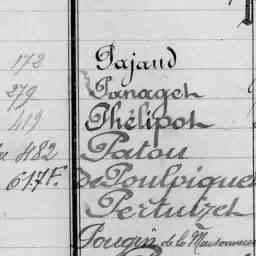 172 Pajaud
279 Panaget
419 Phélipot
482 Patou
617F. de Poulpiquet
Pertuizet
Pougin de la Maisonneuve